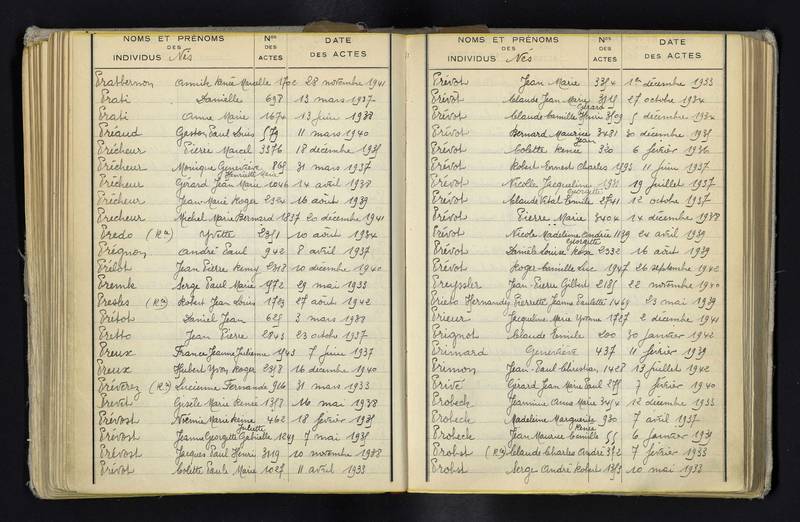 NOMS ET PRÉNOMS
DES
INDIVIDUS Nés
Nos
DES
ACTES
DATE
DES ACTES
Prabbernon Annik Renée Marcelle 28 novembre 1941
Prati Danielle 698 13 mars 1937
Prati Anne Marie 1674 13 juin 1938
Préaud Gaston Paul Louis 579 11 mars 1940
Précheur Pierre Marcel 3376 18 décembre 1935
Précheur Monique Geneviève 868 31 mars 1937
Henriette Marie
Précheur Gérard Jean Marie 1046 14 avril 1938
Précheur Jean Marie Roger 2324 16 août 1939
Precheur Michel Marie Bernard 1837 20 décembre 1941
Predo (Ron) Yvette 2351 10 août 1934
Prégnon André Paul 942 8 avril 1937
Prélot Jean Pierre Remy 2318 10 décembre 1940
Premk Serge Paul Marie 1772 29 mai 1933
Presles (Ron) Robert Jean Louis 1723 27 août 1942
Prétot Daniel Jean 625 3 mars 1938
Pretto Jean Pierre 2843 23 octobre 1937
Preux France Jeanne Julienne 1543 7 juin 1937
Preux Hubert Yvon Roger 2358 16 décembre 1940
Préverez (Ron) Lucienne Fernande 916 31 mars 1933
Prevet Gisèle Marie Renée 1358 16 mai 1938
Prévost Noémie Marie Reine 462 18 février 1935
Juliette
Prévost Jeanne Georgette Gabrielle 1249 7 mai 1935
Prévost Jacques Paul Henri 3119 10 novembre 1938
Prévot Colette Paule Marie 1027 11 avril 1933
NOMS ET PRÉNOMS
DES
INDIVIDUS Nés
Nos
DES
ACTES
DATE
DES ACTES
Prévot Jean Marie 3354 1er décembre 1933
Prévot Claude Jean Marie 27 octobre 1934
Gérard
Prévot Claude Camille Henri 3509 5 décembre 1934
Prévot Bernard Maurice 3481 30 décembre 1935
Jean
Prévot Colette Renée 320 6 février 1936
Prévot Robert Ernest Charles 1593 11 juin 1937
Prévot Nicole Jacqueline 19 juillet 1937
Georgette
Prévot Claude Vital Emile 2741 12 octobre 1937
Prévot Pierre Marie 3404 14 décembre 1938
Prévot Nicole Madeleine Andrée 1139 24 avril 1939
Georgette
Prévot Danièle Louise Rose 2332 16 août 1939
Prévot Roger Camille Luc 1947 26 septembre 1942
Preyssler Jean Pierre Gilbert 2185 22 novembre 1940
Prieto Hernandez Pierrette Jeanne Paulette 1469 23 mai 1939
Prieur Jacqueline Marie Yvonne 1727 2 décembre 1941
Prignot Claude Emile 200 30 janvier 1942
Primard Geneviève 437 11 février 1939
Primon Jean-Paul Christian 1428 13 juillet 1942
Privé Gérard Jean Marie Paul 275 7 février 1940
Probeck Jeannine Anna Marie 3454 12 décembre 1933
Probeck Madeleine Marguerite 930 7 avril 1937
Renée
Probeck Jean Maurice Camille 55 6 janvier 1939
Probst (Ron) Claude Charles André 352 7 février 1933
Probst Serge André Robert 1353 10 mai 1933